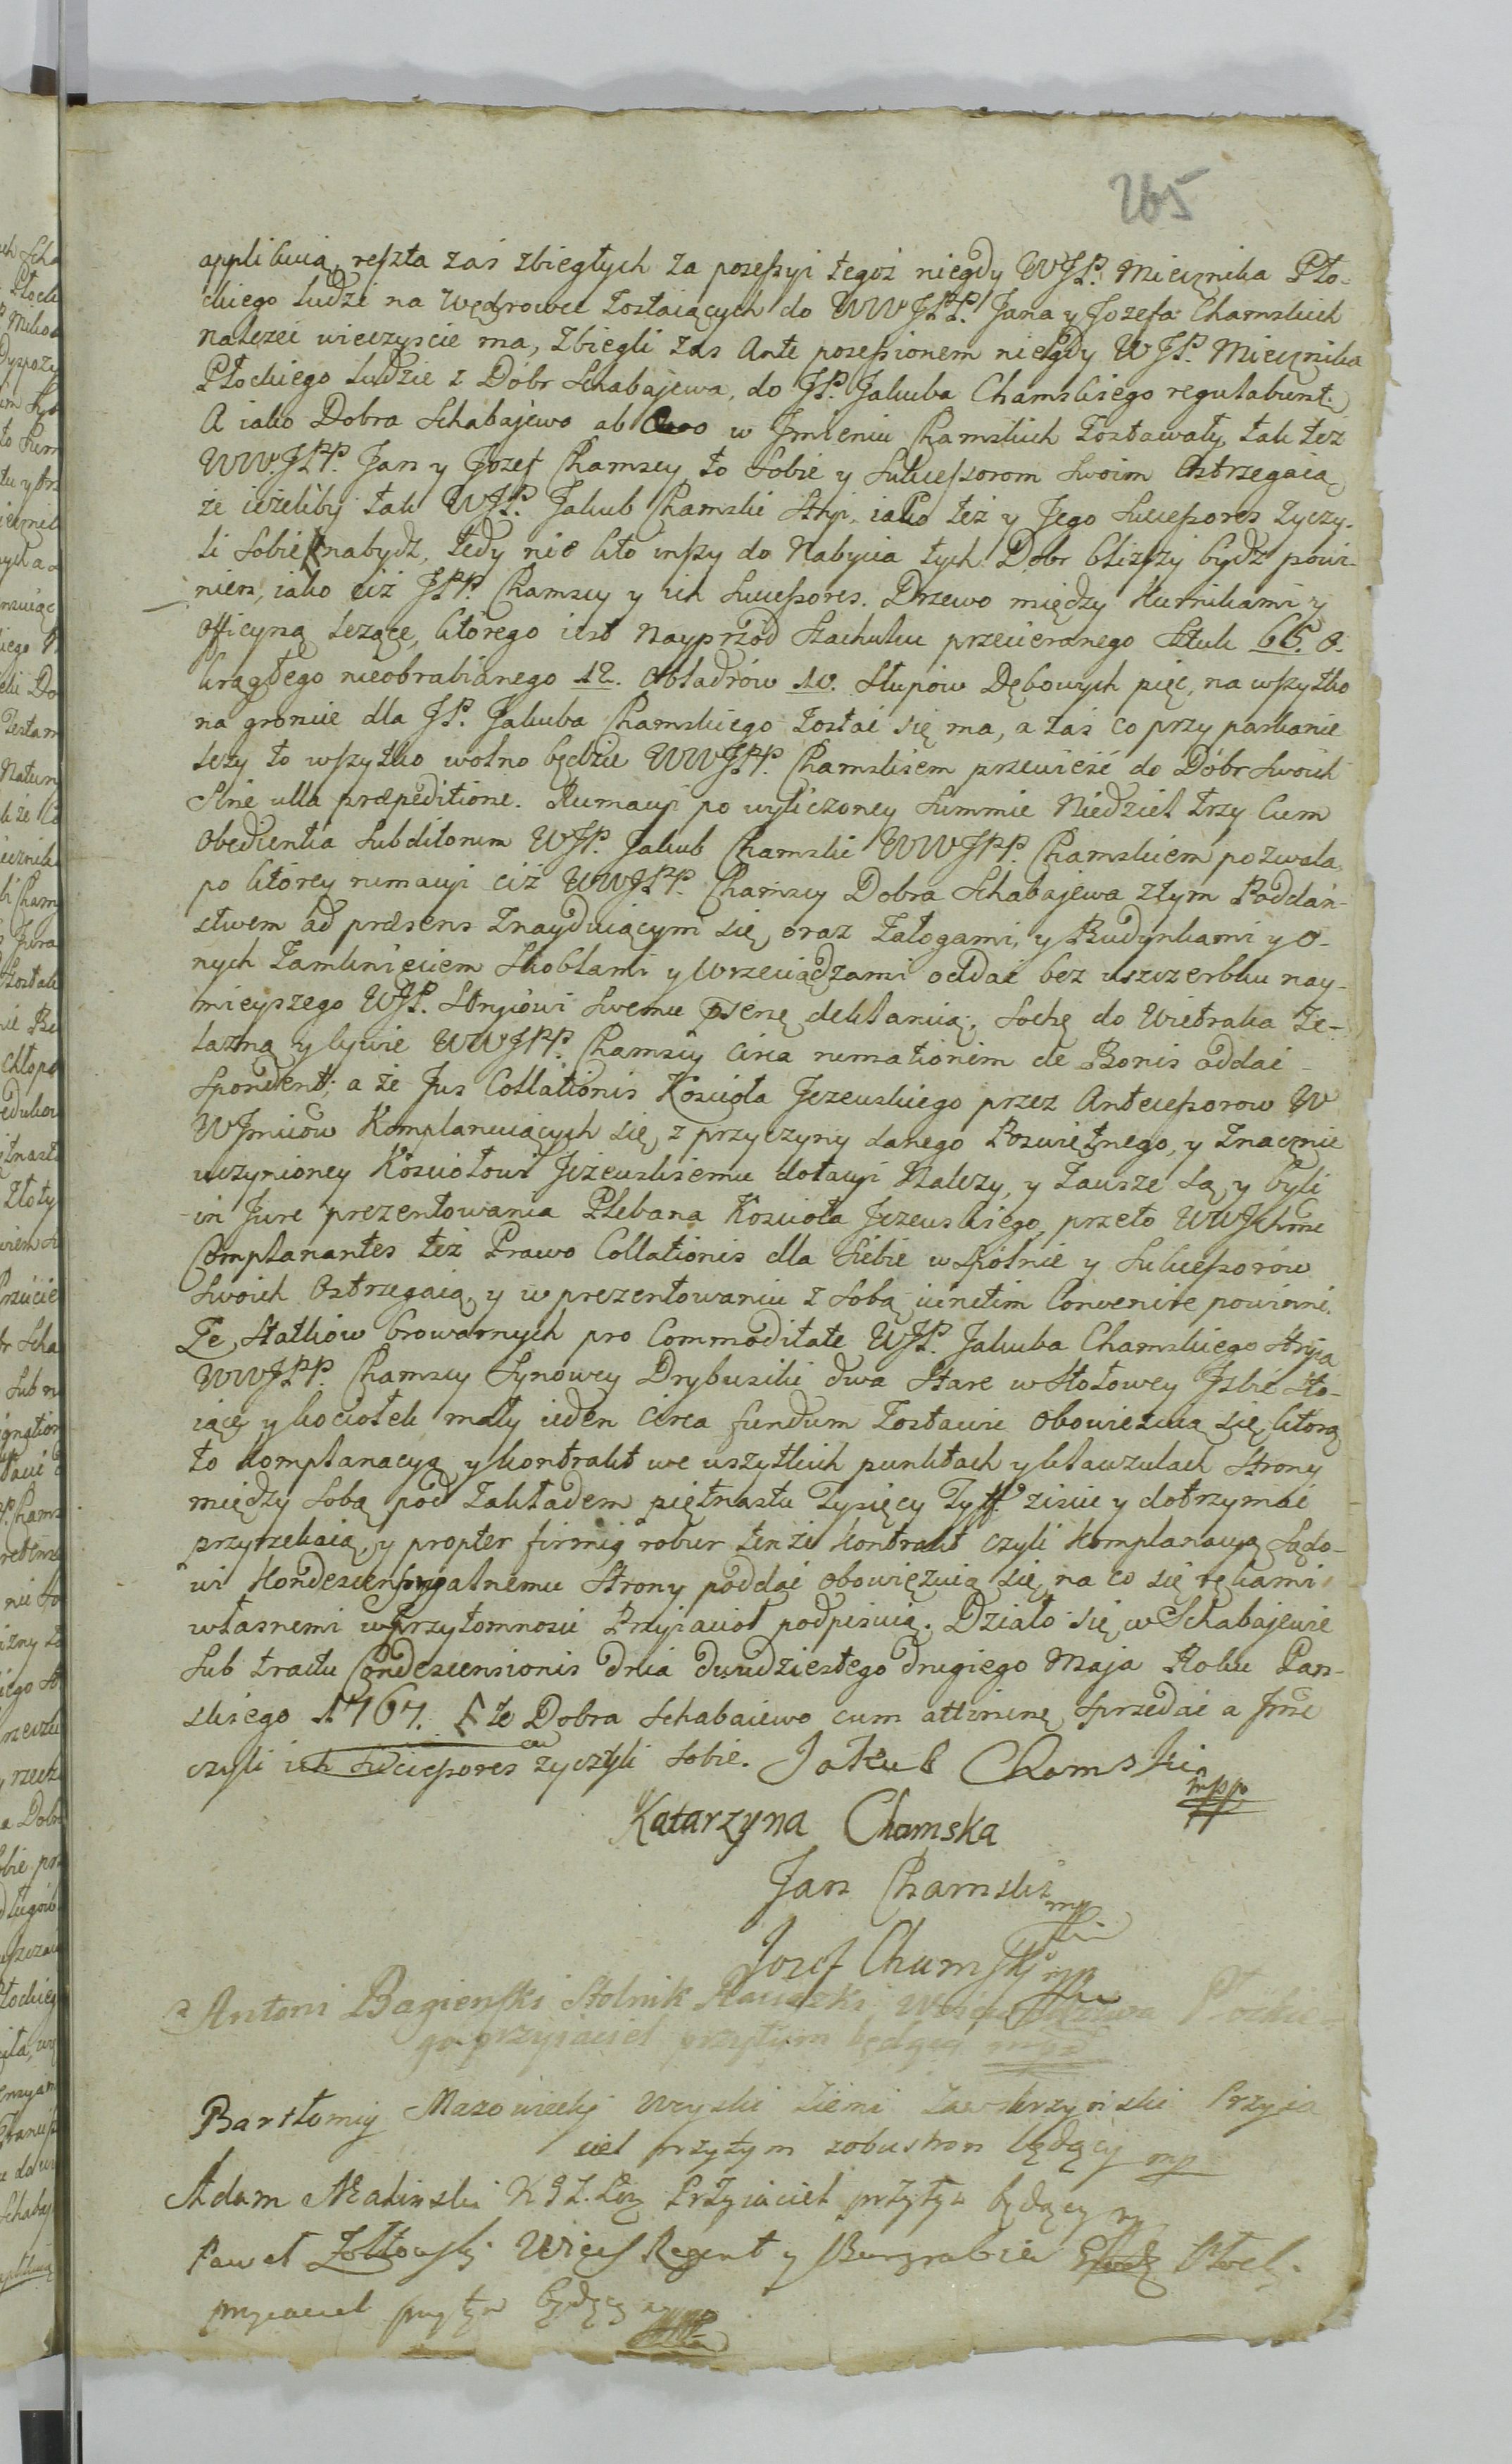 265
applikuią, reszta zaś zbiegłych za possessyi tegoż niegdy WJP. Miecznika Pło-
ckiego ludzi na Wędrowce zostaiących do WWJPP. Jana y Jozefa Chamskich
należeć wieczyscie ma, Zbiegli zas Ante possessionem niegdy WJP. Miecznika
Płockiego ludzie z Dobr Schabajewa, do JP. Jakuba Chamskiego regulabunt.
A iako Dobra Schabajewo ab Avo w Jmieniu Chamskich zostawały, tak też
WW.JPP. Jan y Jozef Chamscy to Sobie y Sukcessorom Swoim Ostrzegaią
że ieżeliby tak WJP. Jakub Chamski Stryi, iako też y Jego Successores życzy-
li Sobie nabydz, tedy nie kto inszy do Nabycia tych Dobr bliższy bydz powi-
nien, iako ciż JPP. Chamscy y ich Successores. Drzewo między Kurnikami y
Officyną leżące, ktorego iest Nayprzod Stachulcu przecieranego Sztuk 66. O-
krągłego nieobrabianego 12. Obładrow 10. Słupow Dębowych pięć, na wszytko
na groncie dla JP. Jakuba Chamskiego zostać się ma, a zaś co przy parkanie
leży to wszytko wolno będzie WWJPP. Chamskiem przewieść do Dobr Swoich
Sine ulla præpeditione. Rumacyi po wyliczoney Summie Niedziel trzy Cum
Obedientia Subditorum WJP. Jakub Chamski WWJPP. Chamskiem pozwala,
po ktorey rumacyi ciż WWJPP. Chamscy Dobra Schabajewa z tym Poddań-
stwem ad præsens znayduiącym się, oraz Załogami, y Budynkami y O-
nych Zamknięciem Skoblami y Wrzeciądzami oddać bez uszczerbku nay-
mieyszego WJP. Stryiowi Swemu deklaruią. Sochę do Wietraka Że-
lazną y WWJPP. Chamscy Circa rumationem de Bonis oddać
Spondent; a że Jus Collationis Kościoła Jeżewskiego przez Antecessorow W
WJmciow Komplanuiących się, z przyczyny danego Poswiętnego, y znacznie
uczynioney Kościołowi Jeżewskiemu dotacyi Należy, y zawsze są y byli
in Jure prezentowania Plebana Kościoła Jeżewskiego, przeto WWJchmc
Complanantes też Prawo Collationis dla Siebie wspolnie y Sukcessorow
Swoich Ostrzegaią, y w prezentowaniu z Sobą iunctim Convenire powinni.
Ze Statkow browarnych pro Commoditate WJP. Jakuba Chamskiego Stryia
WWJPP. Chamscy Synowcy Drybusiki dwa Stare w Stołowey Jzbie Sto-
iące y kociołek mały ieden Circa fundum zostawić obowiezuią się, ktorą
to Komplanacyą y kontrakt we wszytkich punktach y klauzulach Strony
między Sobą pod Zakładem piętnastu Tysięcy Tyff. ziscić y dotrzymać
przyrzekaią, y propter firmiq robur tenże kontrakt czyli komplanacyą Sądo-
wi Kondescensyonalnemu Strony poddać obowięzuią się, na co się rękami
własnemi w przytomnosci Przyiacioł podpisuią. Działo się w Schabajewie
Sub tractu Condescensionis dnia dwudziestego drugiego Maja Roku Pan-
skiego 1767. że Dobra Schabaiewo cum attinen. Sprzedać a Jmć
czyli ich Successores życzyli Sobie. Jakub Chamski mpp
Katarzyna Chamska
Jan Chamski mp
Jozef Chamski mp
Antoni Bagienski Stolnik Raciązki, Woiewodztwa Płockie-
go przyiaciel przytym będący mp
Bartłomiy Mazowiecky Wryski Ziemi Zawskrzynski Przyia
ciel przytym zobustron będący mp
Adam Malinski Przyiaciel przytym będący mp
Paweł Żołtowski Regent y Burgrabia
przyiaciel przytym będący